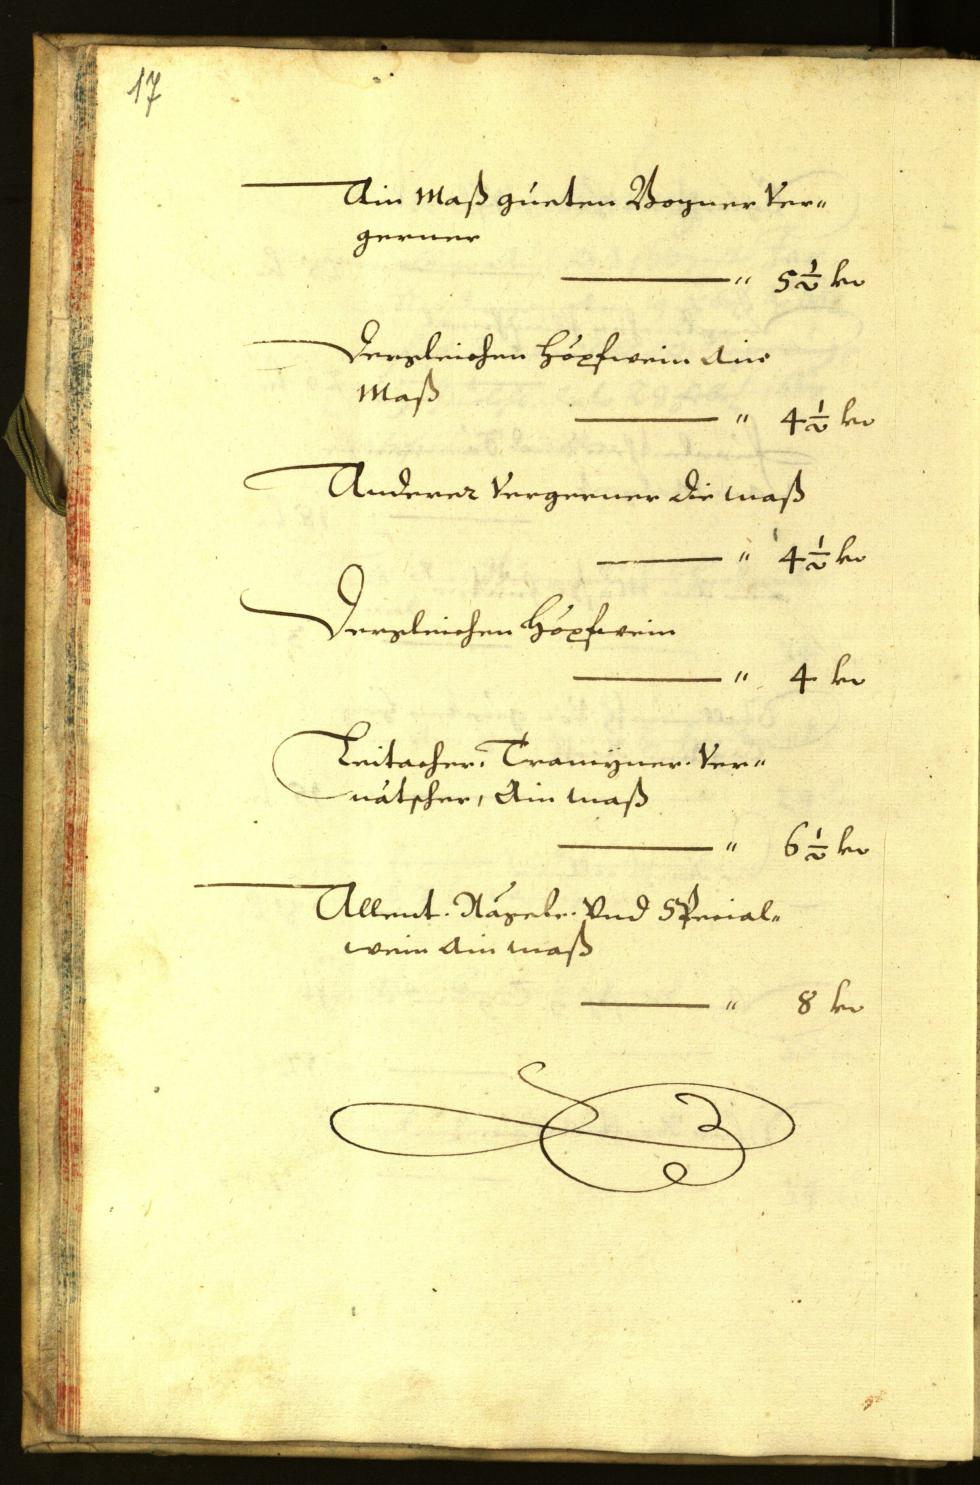 17
Ain Maß gueten Bozner Ver„
gerner
— „ 5 ½ kr
Dergleichen Höpfwein ain
Maß
— „ 4 ½ kr
Anderer Vergerner die maß
— „ 4 ½ kr
Dergleichen Höpfwein
— „ 4 kr
Leitacher. Traminer. Ver„
nätscher, Ain maß
— „ 6 ½ kr
Allent. Näzele. Vnd Special„
wein ain maß
— „ 8 kr